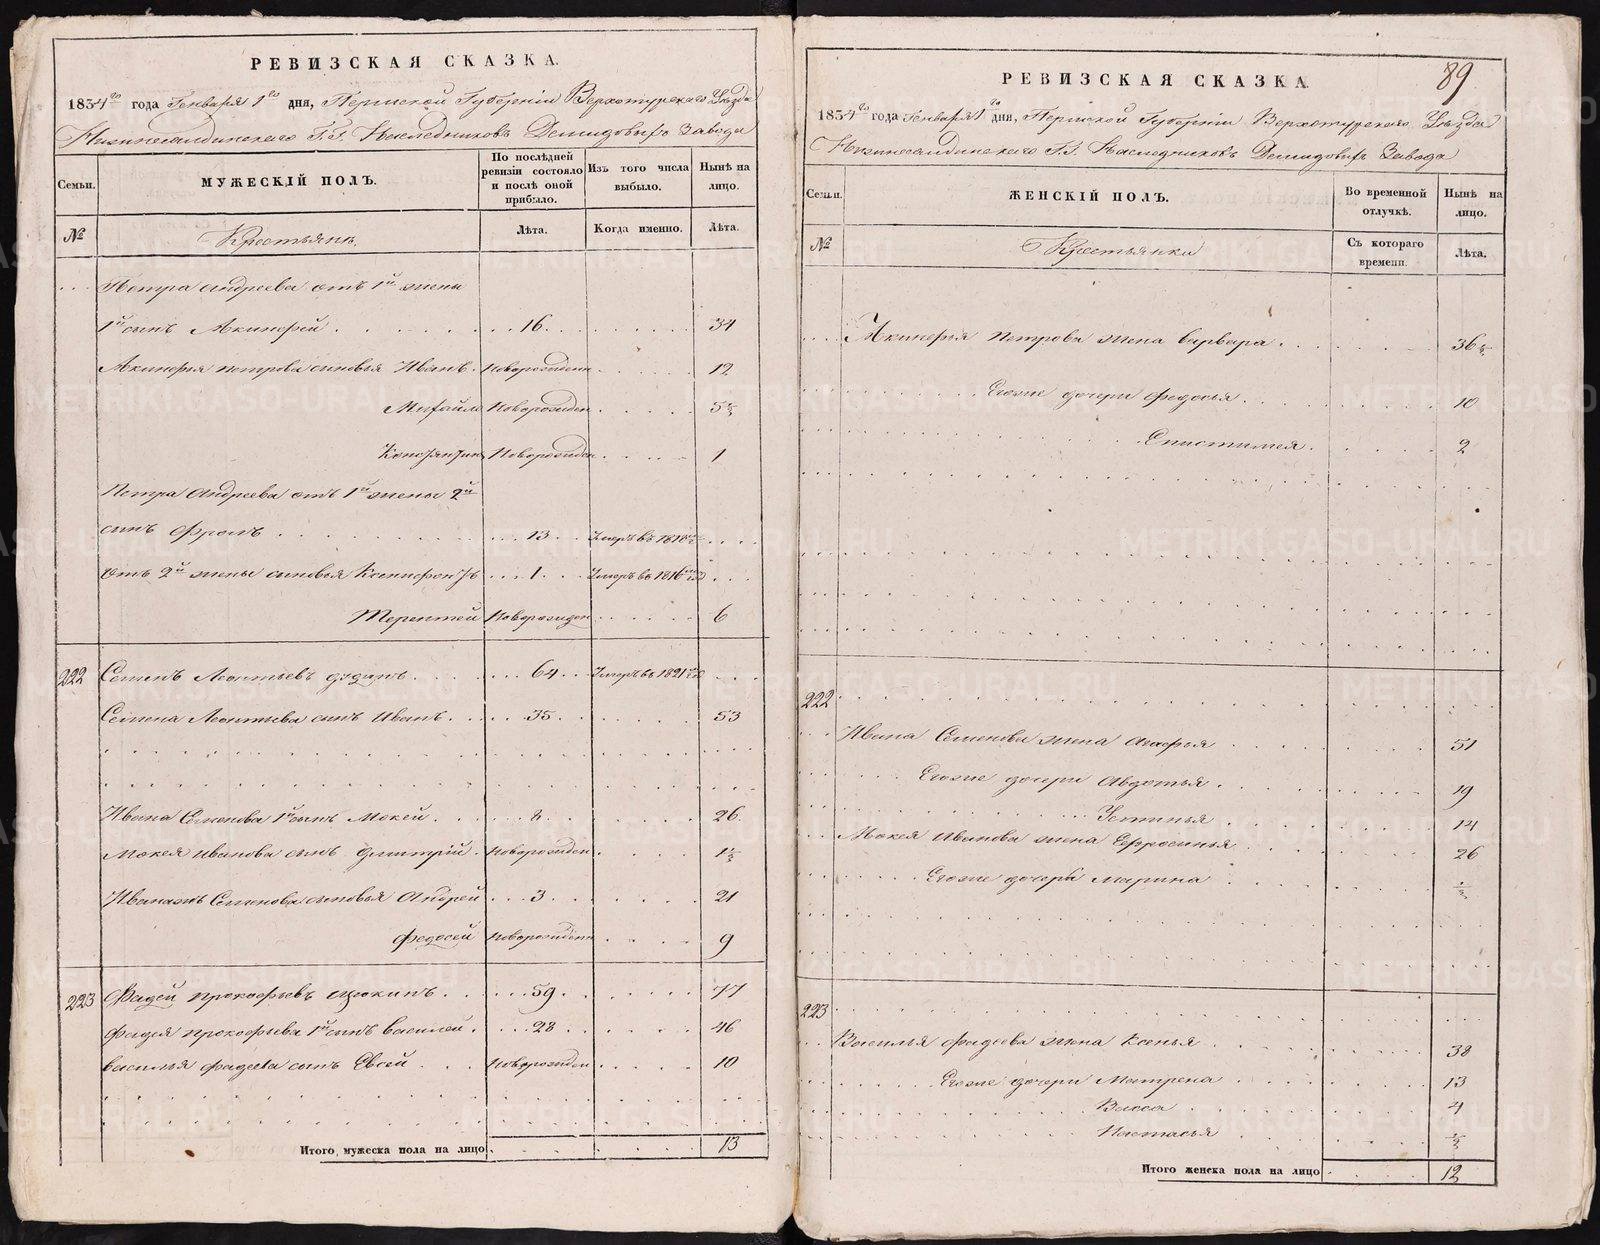 РЕВИЗСКАЯ СКАЗКА.
1834го года Генваря 1го дня, Пермской Губернии Верхотурскаго Уѣзда
Нижнесалдинскаго Г.г. Наследниковъ Демидовыхъ Завода
Семьи.
МУЖЕСКІЙ ПОЛЪ.
По послѣдней ревизіи состояло и послѣ оной прибыло.
Изъ того числа выбыло.
Нынѣ на лицо.
№
Крестьянъ
Лѣта.
Когда именно.
Лѣта.
Петра Андреева отъ 1й жены
1й сынъ Акинфей 16. 34
Акинфья Петрова сыновья Иванъ. Новорожден 12
Михайло Новорожден 5½
Константинъ Новорожден 1
Петра Андреева отъ 1й жены 2й
сынъ Фролъ 13 Умеръ въ
Отъ 2й жены сыновья Ксенофонтъ 1 Умеръ въ 1816
Терентей Новорожден 6
222 Семенъ Леонтьевъ 64 Умеръ въ 1821
Семена Леонтьева сынъ Иванъ. 35. 53
Ивана Семенова 1й сынъ Мокей. 8. 26.
Мокея Иванова сынъ Дмитрій. Новорожден 1½
Иванажъ Семенова сыновья Андрей 3 21
Федосей Новорожден 9
223 Фадей Прокофьевъ 59. 77
Фадея Прокофьева 1й сынъ Василей. 28 46
Василья Фадеева сынъ Евсей Новорожден 10
Итого мужеска пола на лицо 13
89
РЕВИЗСКАЯ СКАЗКА
1834го года Генваря 1го дня, Пермской Губерніи Верхотурскаго Уѣзда
Нижнесалдинскаго Г.г. Наследниковъ Демидовыхъ Завода
Семьи.
ЖЕНСКІЙ ПОЛЪ.
Во временной отлучкѣ.
Нынѣ на лицо.
№
Крестьянки
Съ котораго времени.
Лѣта.
Акинфья Петрова жена Варвара. 36½
Егоже дочери Федосья 10
Епистимея. 2
222
Ивана Семенова жена Агафья 51
Егоже дочери Авдотья. 19
Устинья 14
Мокея Иванова жена Ефросинья 26
Егоже дочери Марина ½
223
Василья Фадеева жена Ксенья 38
Егоже дочери Матрена 13
Васса 4
Настасья ½
Итого женска пола на лицо 12
METRIKI.GASO-URAL.RU